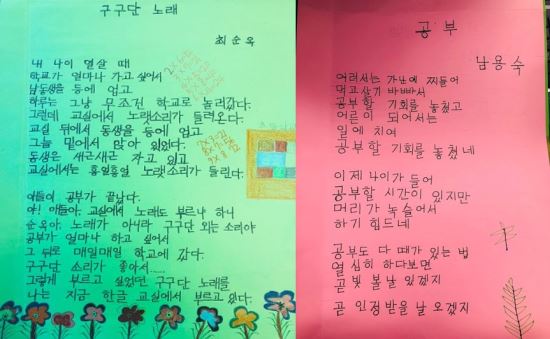 구구단 노래
최순옥
내 나이 열살 때
학교가 얼마나 가고 싶어서
남동생을 등에 업고
하루는 그냥 무조건 학교로 놀러갔다.
그런데 교실에서 노랫소리가 들려온다.
교실 뒤에서 동생을 등에 업고
그늘 밑에서 앉아 있었다.
동생은 새근새근 자고 있고
교실에서는 흥얼흥얼 노랫소리가 들린다.
아이들이 공부가 끝났다.
야! 얘들아, 교실에서 노래도 부르나 하니
순옥아, 노래가 아니라 구구단 외는 소리야
공부가 얼마나 하고 싶어서
그 뒤로 매일매일 학교에 갔다.
구구단 소리가 좋아서.....
그렇게 부르고 싶었던 구구단 노래를
나는 지금 한글 교실에서 부르고 있다.
공부
남용숙
어려서는 가난에 찌들어
먹고살기 바빠서
공부할 기회를 놓쳤고
어른이 되어서는
일에 치여
공부할 기회를 놓쳤네
이제 나이가 들어
공부할 시간이 있지만
머리가 녹슬어서
하기 힘드네
공부도 다 때가 있는 법
열심히 하다보면
곧 빛 볼 날 있겠지
곧 인정받을 날 오겠지